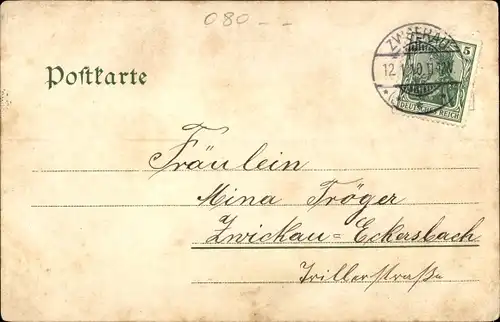 080--
ZWICKAU
5
12.1.10.
DEUTSCHES REICH
Postkarte
Fräulein
Mina Tröger
Zwickau=Eckersbach
Trillerstraße